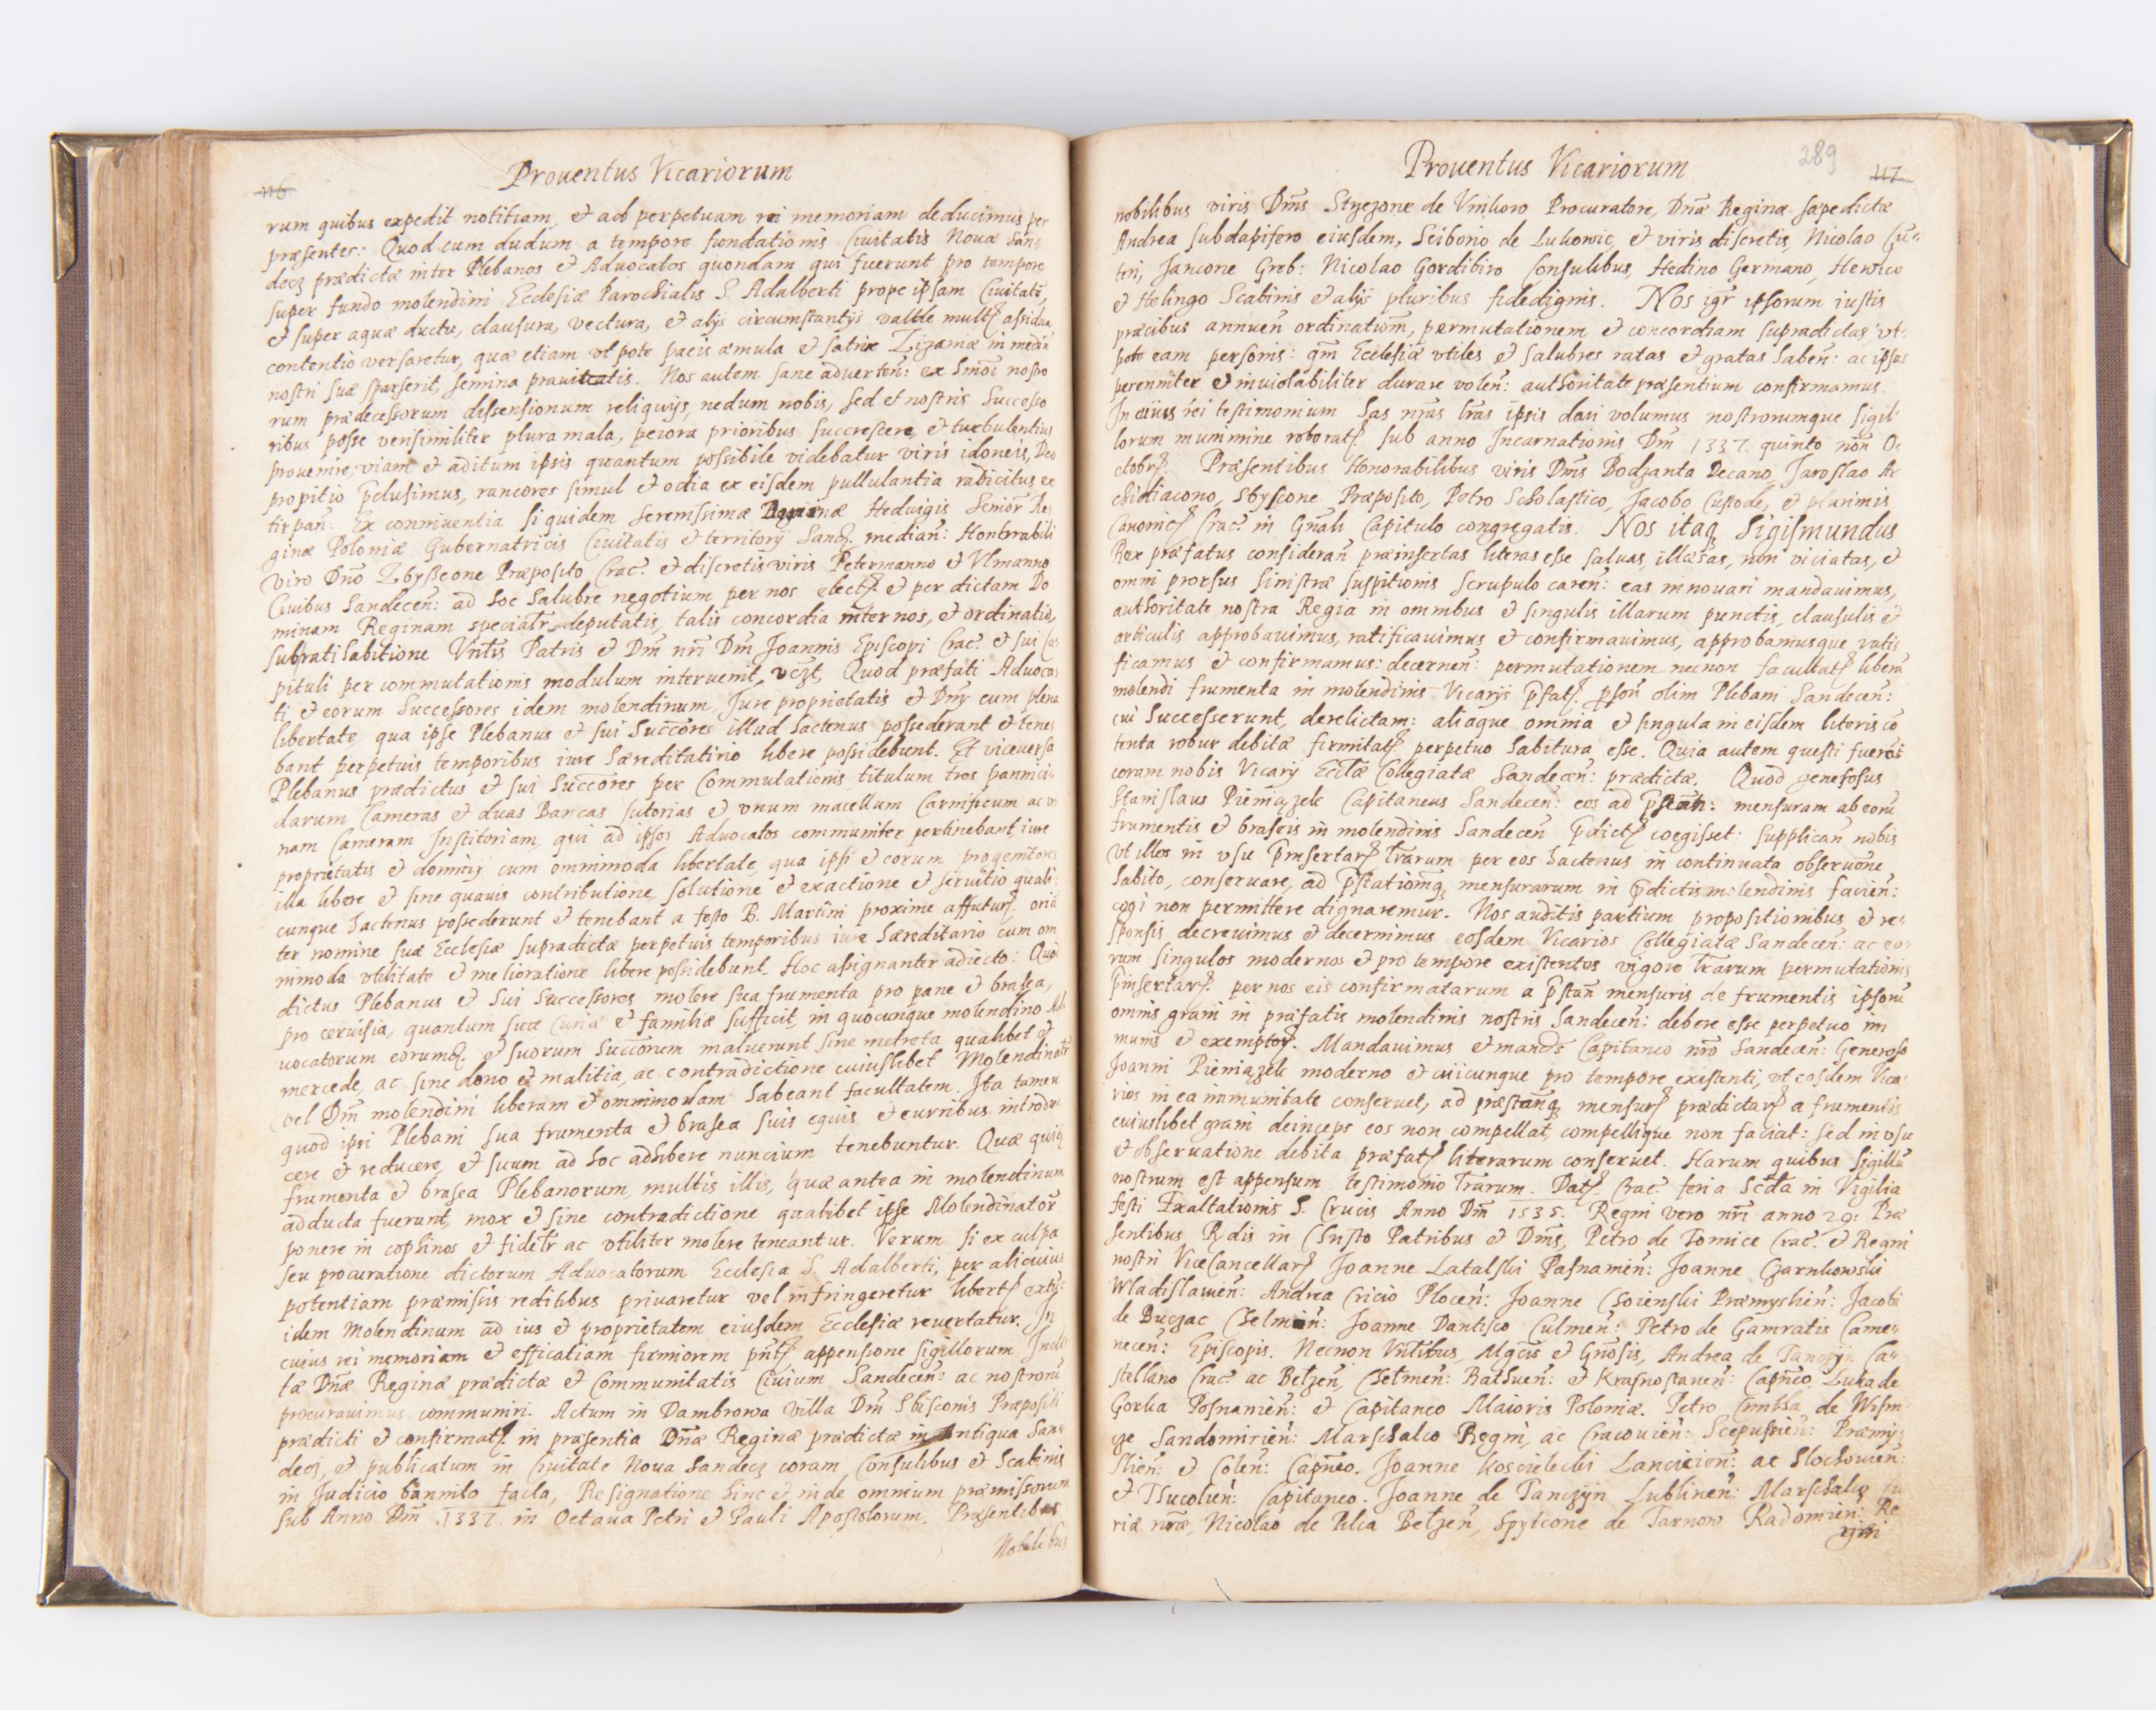 116
Prouentus Vicariorum
rum quibus expedit notitiam, et ad perpetuam rei memoriam deducimus per
præsentes: Quod cum dudum a tempore fundationis Ciuitatis Nouæ San-
decz prædictæ inter Plebanos et Aduocatos quondam qui fuerunt pro tempore
super fundo molendini Ecclesiæ Parochialis S. Adalberti prope ipsam Ciuitatē,
et super aquæ ductu, clausura, vectura, et alijs circumstantijs valde mult. assidua
contentio versaretur, quæ etiam vt pote pacis æmula et satrix Zizaniæ in medio
nostri suæ sparserit, semina prauitatis. Nos autem sane aduerten̄: ex Smōi nostro
rum prædecessorum dissensionum reliquijs, nedum nobis, sed et nostris Successo
ribus posse verisimiliter plura mala, peiora prioribus succrescere, et turbulentius
prouenire, viam et aditum ipsis quantum possibile videbatur viris idoneis, Deo
propitio p̄clusimus, rancores simul et odia ex eisdem pullulantia radicitus ex
tirpan̄: Ex conniuentia siquidem Serenissimæ Reginæ Heduigis Senior̄ Re
ginæ Poloniæ Gubernatricis Ciuitatis et territorij Sand. median̄: Honorabili
viro Dnō Zbyßcone Præposito Crac. et discretis viris Petermanno et Vlmanno
Ciuibus Sandecen̄: ad hoc salubre negotium per nos elect. et per dictam Do
minam Reginam specialr̄ deputatis, talis concordia inter nos, et ordinatio,
subratihabitione Vnt̄is Patris et Dm̄ nr̄i Dm̄ Joannis Episcopi Crac. et sui Ca
pituli per commutationis modulum interuenit, vcz̄t, Quod præfati Aduoca
ti et eorum Successores idem molendinum Jure proprietatis et Dnÿ cum plena
libertate, qua ipse Plebanus et sui Succōres illud hactenus possederant et tene
bant perpetuis temporibus iure hæreditario libere possidebunt. Et viceuersa
Plebanus prædictus et sui Succōres per Commutationis titulum tres pannici
darum Cameras et duas Bancas sutorias et vnum macellum Carnificum ac v
nam Cameram Institoriam, qui ad ipsos Aduocatos communiter pertinebant iure
proprietatis et dominij cum omnimoda libertate, qua ipsi et eorum progenitores
illa libere et sine quauis contributione, solutione et exactione et seruitio quali
cunque hactenus possederunt et tenebant a festo B. Martini proxime affutur.
ter nomine suæ Ecclesiæ supradictæ perpetuis temporibus iure hæreditario cum om
nimoda vtilitate et melioratione libere possidebunt. Hoc assignanter adiecto: Quod
dictus Plebanus et sui Successores molere sua frumenta pro pane et brasea,
pro ceruisia, quantum suæ Curiæ et familiæ sufficit, in quocunque molendino Ad
uocatorum eorumq. et suorum Succōrum maluerunt sine metreta qualibet et
mercede, ac sine dono et malitia, ac contradictione cuiuslibet Molendinatōr
vel Dm̄ molendini liberam et omnimodam habeant facultatem. Ita tamen
quod ipsi Plebani sua frumenta et brasea suis equis et curribus introdu
cere et reducere, et suum ad hoc adhibere nuncium tenebuntur. Quæ quiq
frumenta et brasea Plebanorum, multis illis, quæ antea in molendinum
adducta fuerunt, mox et sine contradictione qualibet ipse Molendinator
ponere in cophinos et fidelr̄ ac vtiliter molere teneantur. Verum si ex culpa
seu procuratione dictorum Aduocatorum Ecclesia S. Adalberti, per alicuius
potentiam præmissis reditibus priuaretur vel infringeretur libert. extunc
idem Molendinum ad ius et proprietatem eiusdem Ecclesiæ reuertatur. In
cuius rei memoriam et efficatiam firmiorem pn̄t. appensione sigillorum Incli
tæ Dnæ Reginæ prædictæ et Communitatis Ciuium Sandecen̄: ac nostrorū
procurauimus communiri. Actum in Dambrowa villa Dm̄ Sbisconis Præpositi
prædicti et confirmat. in præsentia Dnæ Reginæ prædictæ in Antiqua San-
decz, et publicatum in Ciuitate Noua Sandecz coram Consulibus et Scabinis
in Judicio bannito facta, Resignatione hinc et inde omnium præmissorum
sub Anno Dm̄ 1337 in Octaua Petri et Pauli Apostolorum. Præsentibus
Nobilibus
Prouentus Vicariorum
289
117
nobilibus viris Dm̄s Styezone de Vnihowo Procuratore, Dnæ Reginæ sæpedictæ
Andrea subdapifero eiusdem, Sciborio de Lukowic, et viris discretis, Nicolao Cu-
teri, Jancone Greb: Nicolao Gorditiro Consulibus, Hedino Germano, Henrico
et Helingo Scabinis et alijs pluribus fidedignis. Nos igr̄ ipsorum iustis
præcibus annuen̄ ordinatiōm, permutationem et concordiam supradictas, vt-
pote eam personis: qm̄ Ecclesiæ vtiles et salubres ratas et gratas haben̄: ac ipsas
perenniter et inuiolabiliter durare volen̄: authoritate præsentium confirmamus.
In cuius rei testimonium has nr̄as lr̄as ipsis dari volumus nostrorumque sigil-
lorum munimine roborat. sub anno Incarnationis Dm̄ 1337 quinto non̄ O-
ctobr. Præsentibus Honorabilibus viris Dm̄s Bodzanta Decano, Jaroslao Ar
chidiacono, Sbyscone Præposito, Petro Scholastico, Jacobo Custode, et plurimis
Canonic. Crac. in Gn̄ali Capitulo congregatis. Nos itaq. Sigismundus
Rex præfatus consideran̄ præinsertas literas esse saluas, illæsas, non viciatas, et
omni prorsus sinistræ suspitionis scrupulo caren̄: eas innouari mandauimus,
authoritate nostra Regia in omnibus et singulis illarum punctis, clausulis et
articulis approbauimus, ratificauimus et confirmauimus, approbamusque rati
ficamus et confirmamus: decernen̄: permutationem necnon facultat. liberā
molendi frumenta in molendinis Vicarijs p̄fat. p̄son̄ olim Plebani Sandecen̄:
cui Successerunt, derelictam: aliaque omnia et singula in eisdem literis cō
tenta robur debitæ firmitat. perpetuo habitura esse. Quia autem questi fuerāt
coram nobis Vicarij Eccl̄æ Collegiatæ Sandecen̄: prædictæ. Quod generosus
Stanislaus Pieniązek Capitaneus Sandecen̄: eos ad p̄stan̄: mensuram ab eorū
frumentis et braseis in molendinis Sandecen̄ p̄dict. coegisset: supplican̄ nobis
vt illos in vsu p̄insertar. lr̄arum per eos hactenus in continuata obseruōne
habito, conseruare, ad p̄stationēq. mensurarum in p̄dictis molendinis facien̄:
cogi non permittere dignaremur. Nos auditis partium propositionibus et re-
sponsis decreuimus et decernimus eosdem Vicarios Collegiatæ Sandecen̄: ac eo
rum singulos modernos et pro tempore existentes vigore lr̄arum permutationis
p̄insertar. per nos eis confirmatarum a p̄stan̄ mensuris de frumentis ipsorū
omnis grani in præfatis molendinis nostris Sandecen̄: debere esse perpetuo im
munis et exemptos. Mandauimus et mandō Capitaneo nr̄o Sandecen̄: Generoso
Joanni Pieniązek moderno et cuicunque pro tempore existenti, vt eosdem Vica-
rios in ea immunitate conseruet, ad præstan̄q. mensur. prædictar. a frumentis
cuiuslibet grani deinceps eos non compellat, compellique non faciat: sed in vsu
et obseruatione debita præfat. literarum conseruet. Harum quibus sigillū
nostrum est appensum testimonio lr̄arum. Dat. Crac. feria Scda in Vigilia
festi Exaltationis S. Crucis Anno Dm̄ 1535. Regni vero nr̄i anno 29. Præ
sentibus Rndis in Christo Patribus et Dm̄s, Petro de Tomice Crac. et Regni
nostri ViceCancellar. Joanne Latalski Posnanien̄: Joanne Czarnkowski
Wladislauien̄: Andrea Cricio Plocen̄: Joanne Choienski Præmyslien̄: Jacobi
de Buczac Chelmen̄: Joanne Dantisco Culmen̄: Petro de Gamratis Came-
necen̄: Episcopis. Necnon Vnt̄ibus, Mgcis et Gnōsis, Andrea de Tanczyn Ca-
stellano Crac. ac Betzen̄, Chelmen̄: Rathuen̄: et Krasnostauen̄: Capn̄eo Luca de
Gorka Posnanien̄: et Capitaneo Maioris Poloniæ. Petro Cmitha de Wisni
ze Sandomirien̄: Marschalco Regni, ac Cracouien̄: Scepusien̄: Præmy
slien̄: et Colen̄: Capn̄eo. Joanne Koscielecki Lancicien̄: ac Slochouien̄:
et Thucolien̄: Capitaneo. Joanne de Tanczyn Lublinen̄: Marschalco Cu
riæ nr̄æ, Nicolao de Pilca Betzen̄, Spytcone de Tarnow Radomien̄: Re
gni